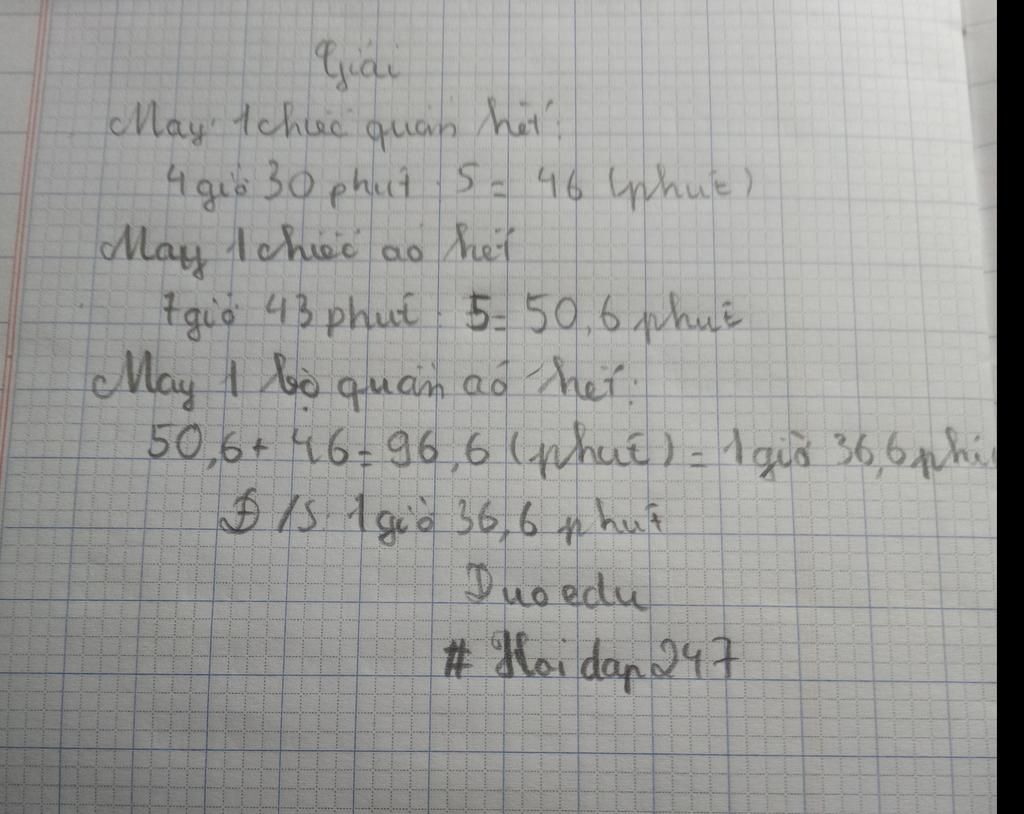 Giải
May 1 chiếc quần hết:
4 giờ 30 phút : 5 = 46 (phút)
May 1 chiếc áo hết
7 giờ 43 phút : 5 = 50,6 phút
May 1 bộ quần áo hết:
50,6 + 46 = 96,6 (phút) = 1 giờ 36,6 phú
Đ/S: 1 giờ 36,6 phút
Duoedu
# Hoidap247